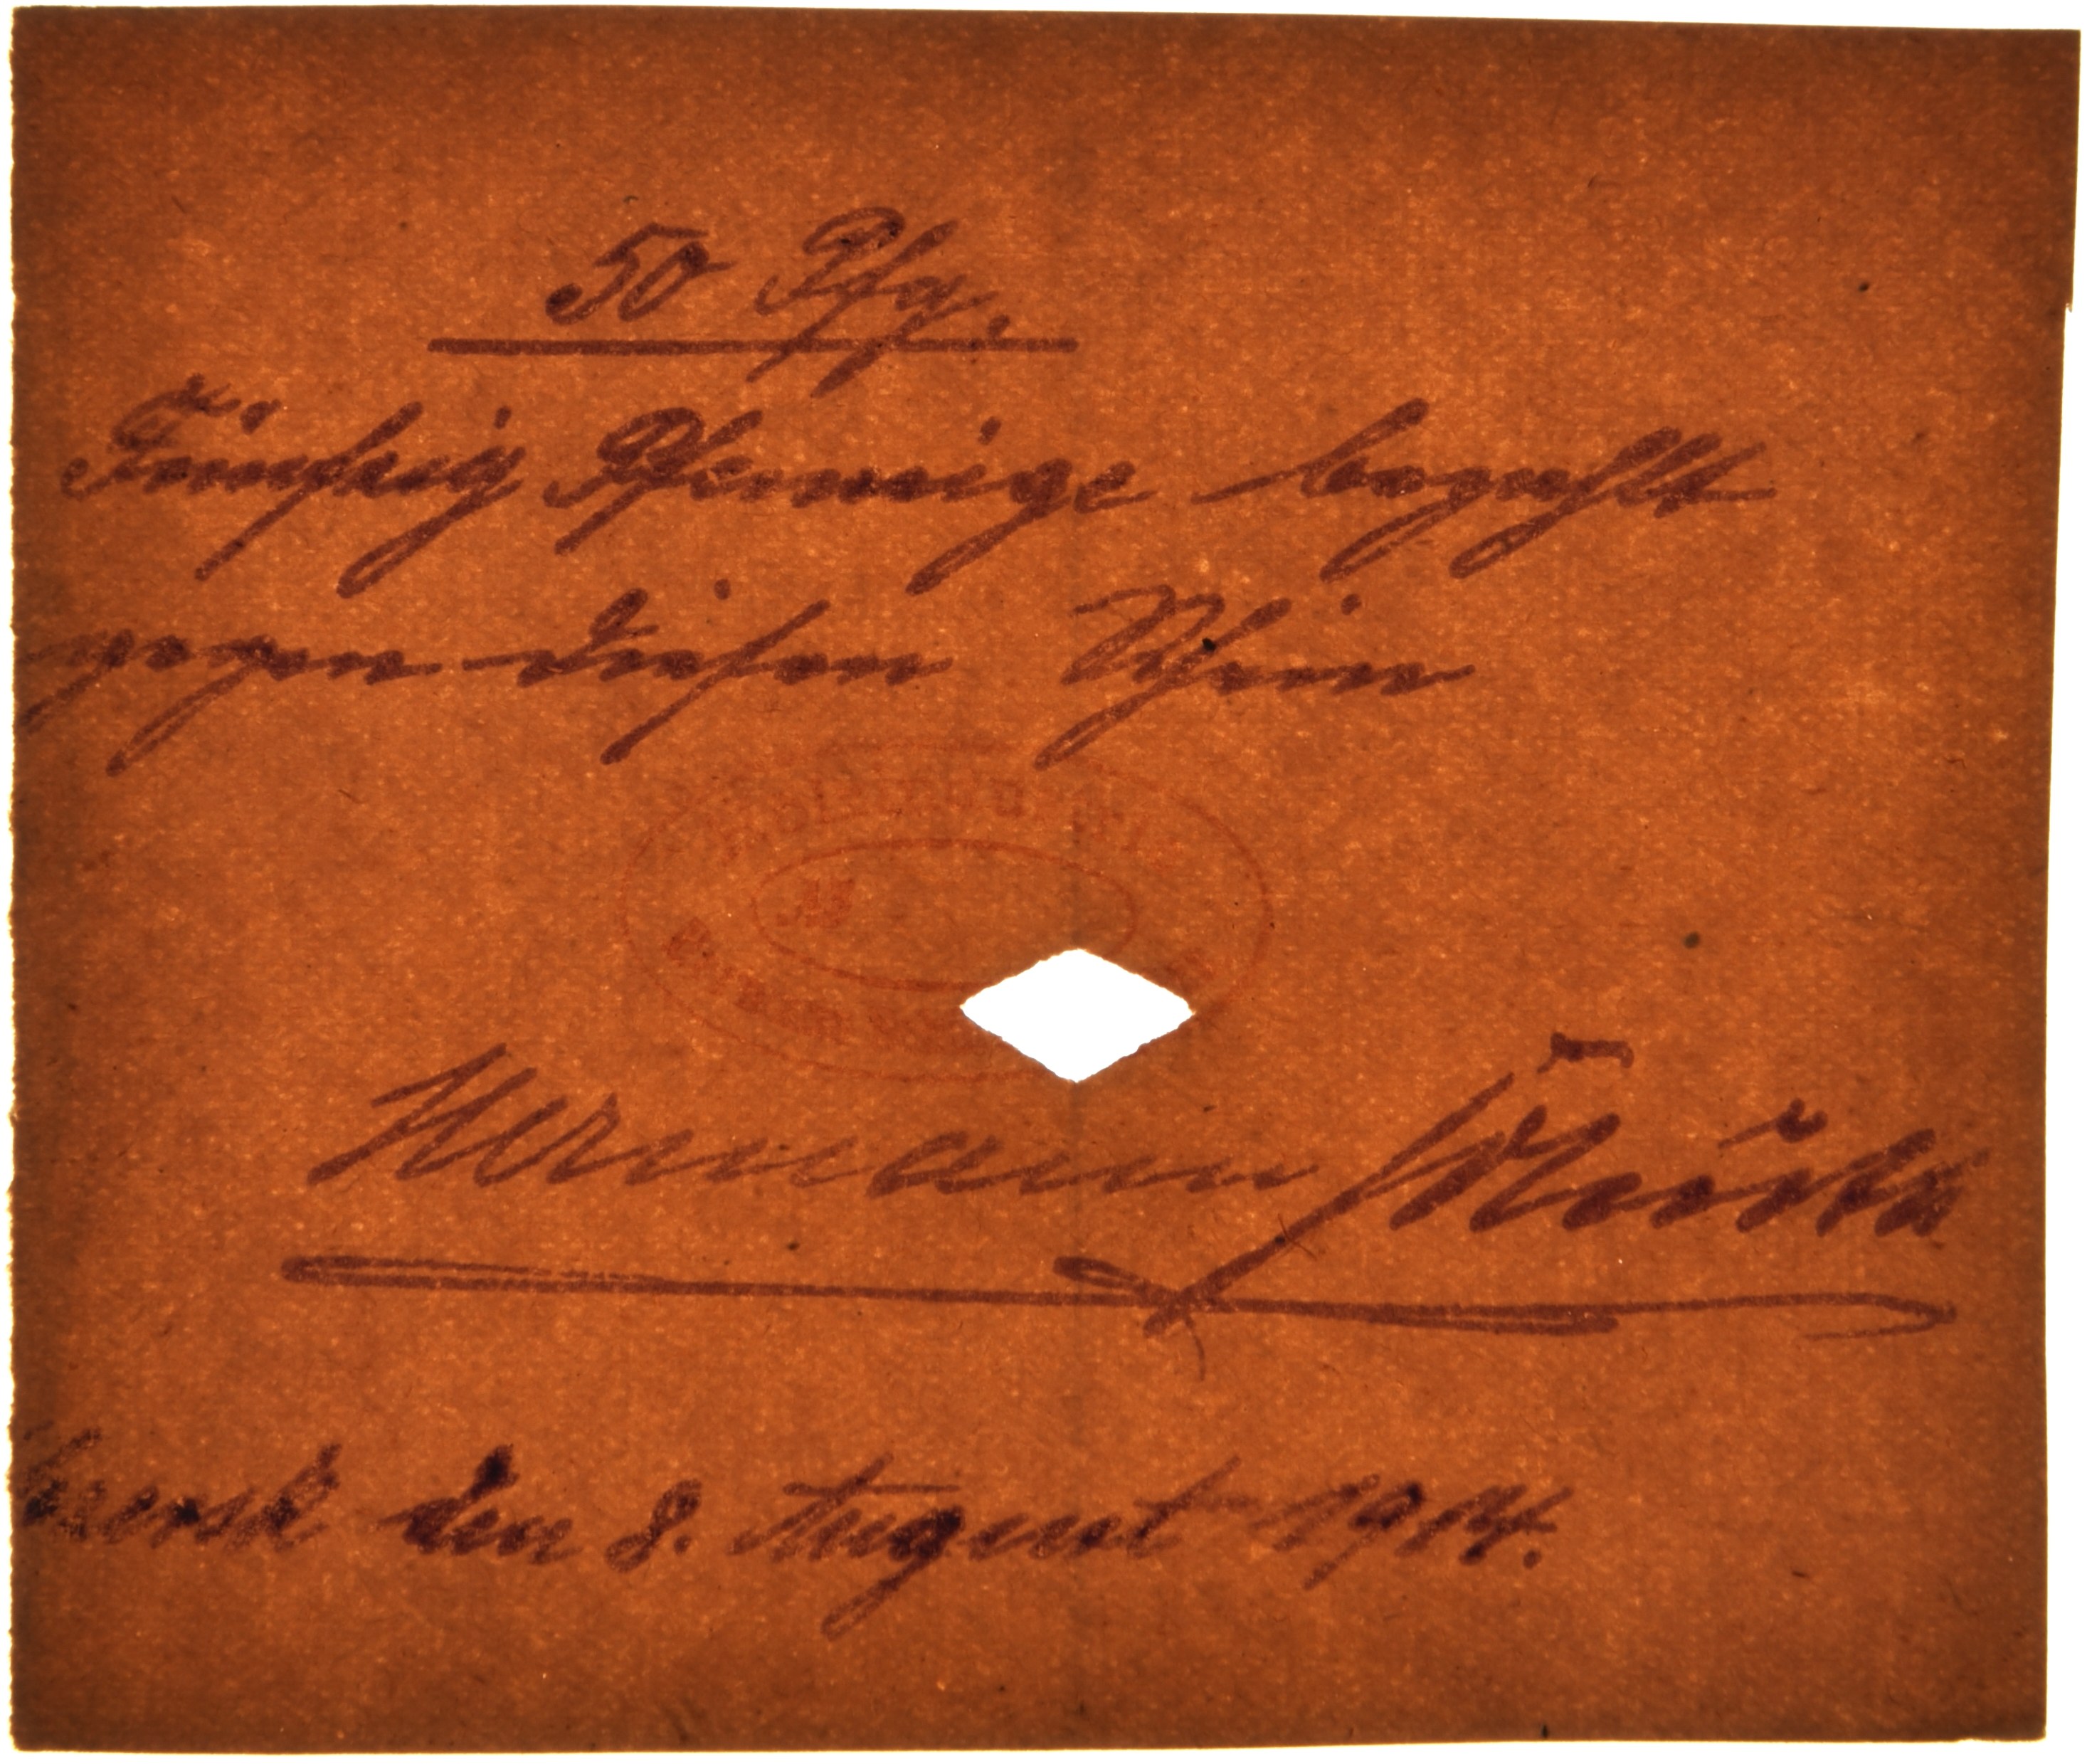 50 Pfg.
Fünfzig Pfennige bezahlt
gegen diesen Schein
Hermann
den 8. August 1914.